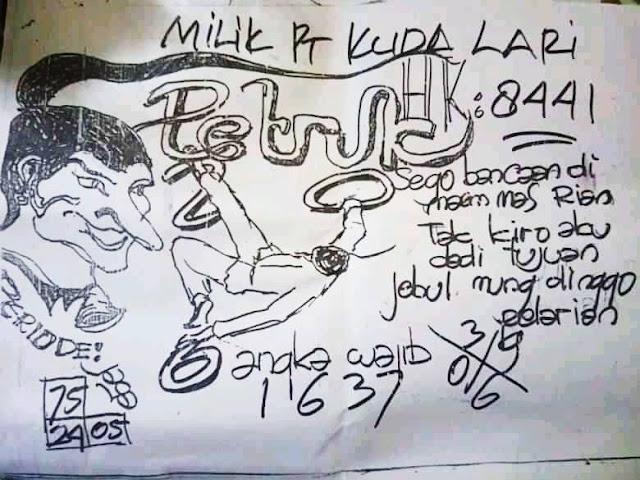 MILIK PT KUDA LARI
Petruk
HK: 8441
Sego bancaan di
maem mas Rian
Tak kiro aku
dadi tujuan
jebul mung dinggo
pelarian
PERIODE!
angka wajib
1 6 3 7
3 5
0 6
75
24 05